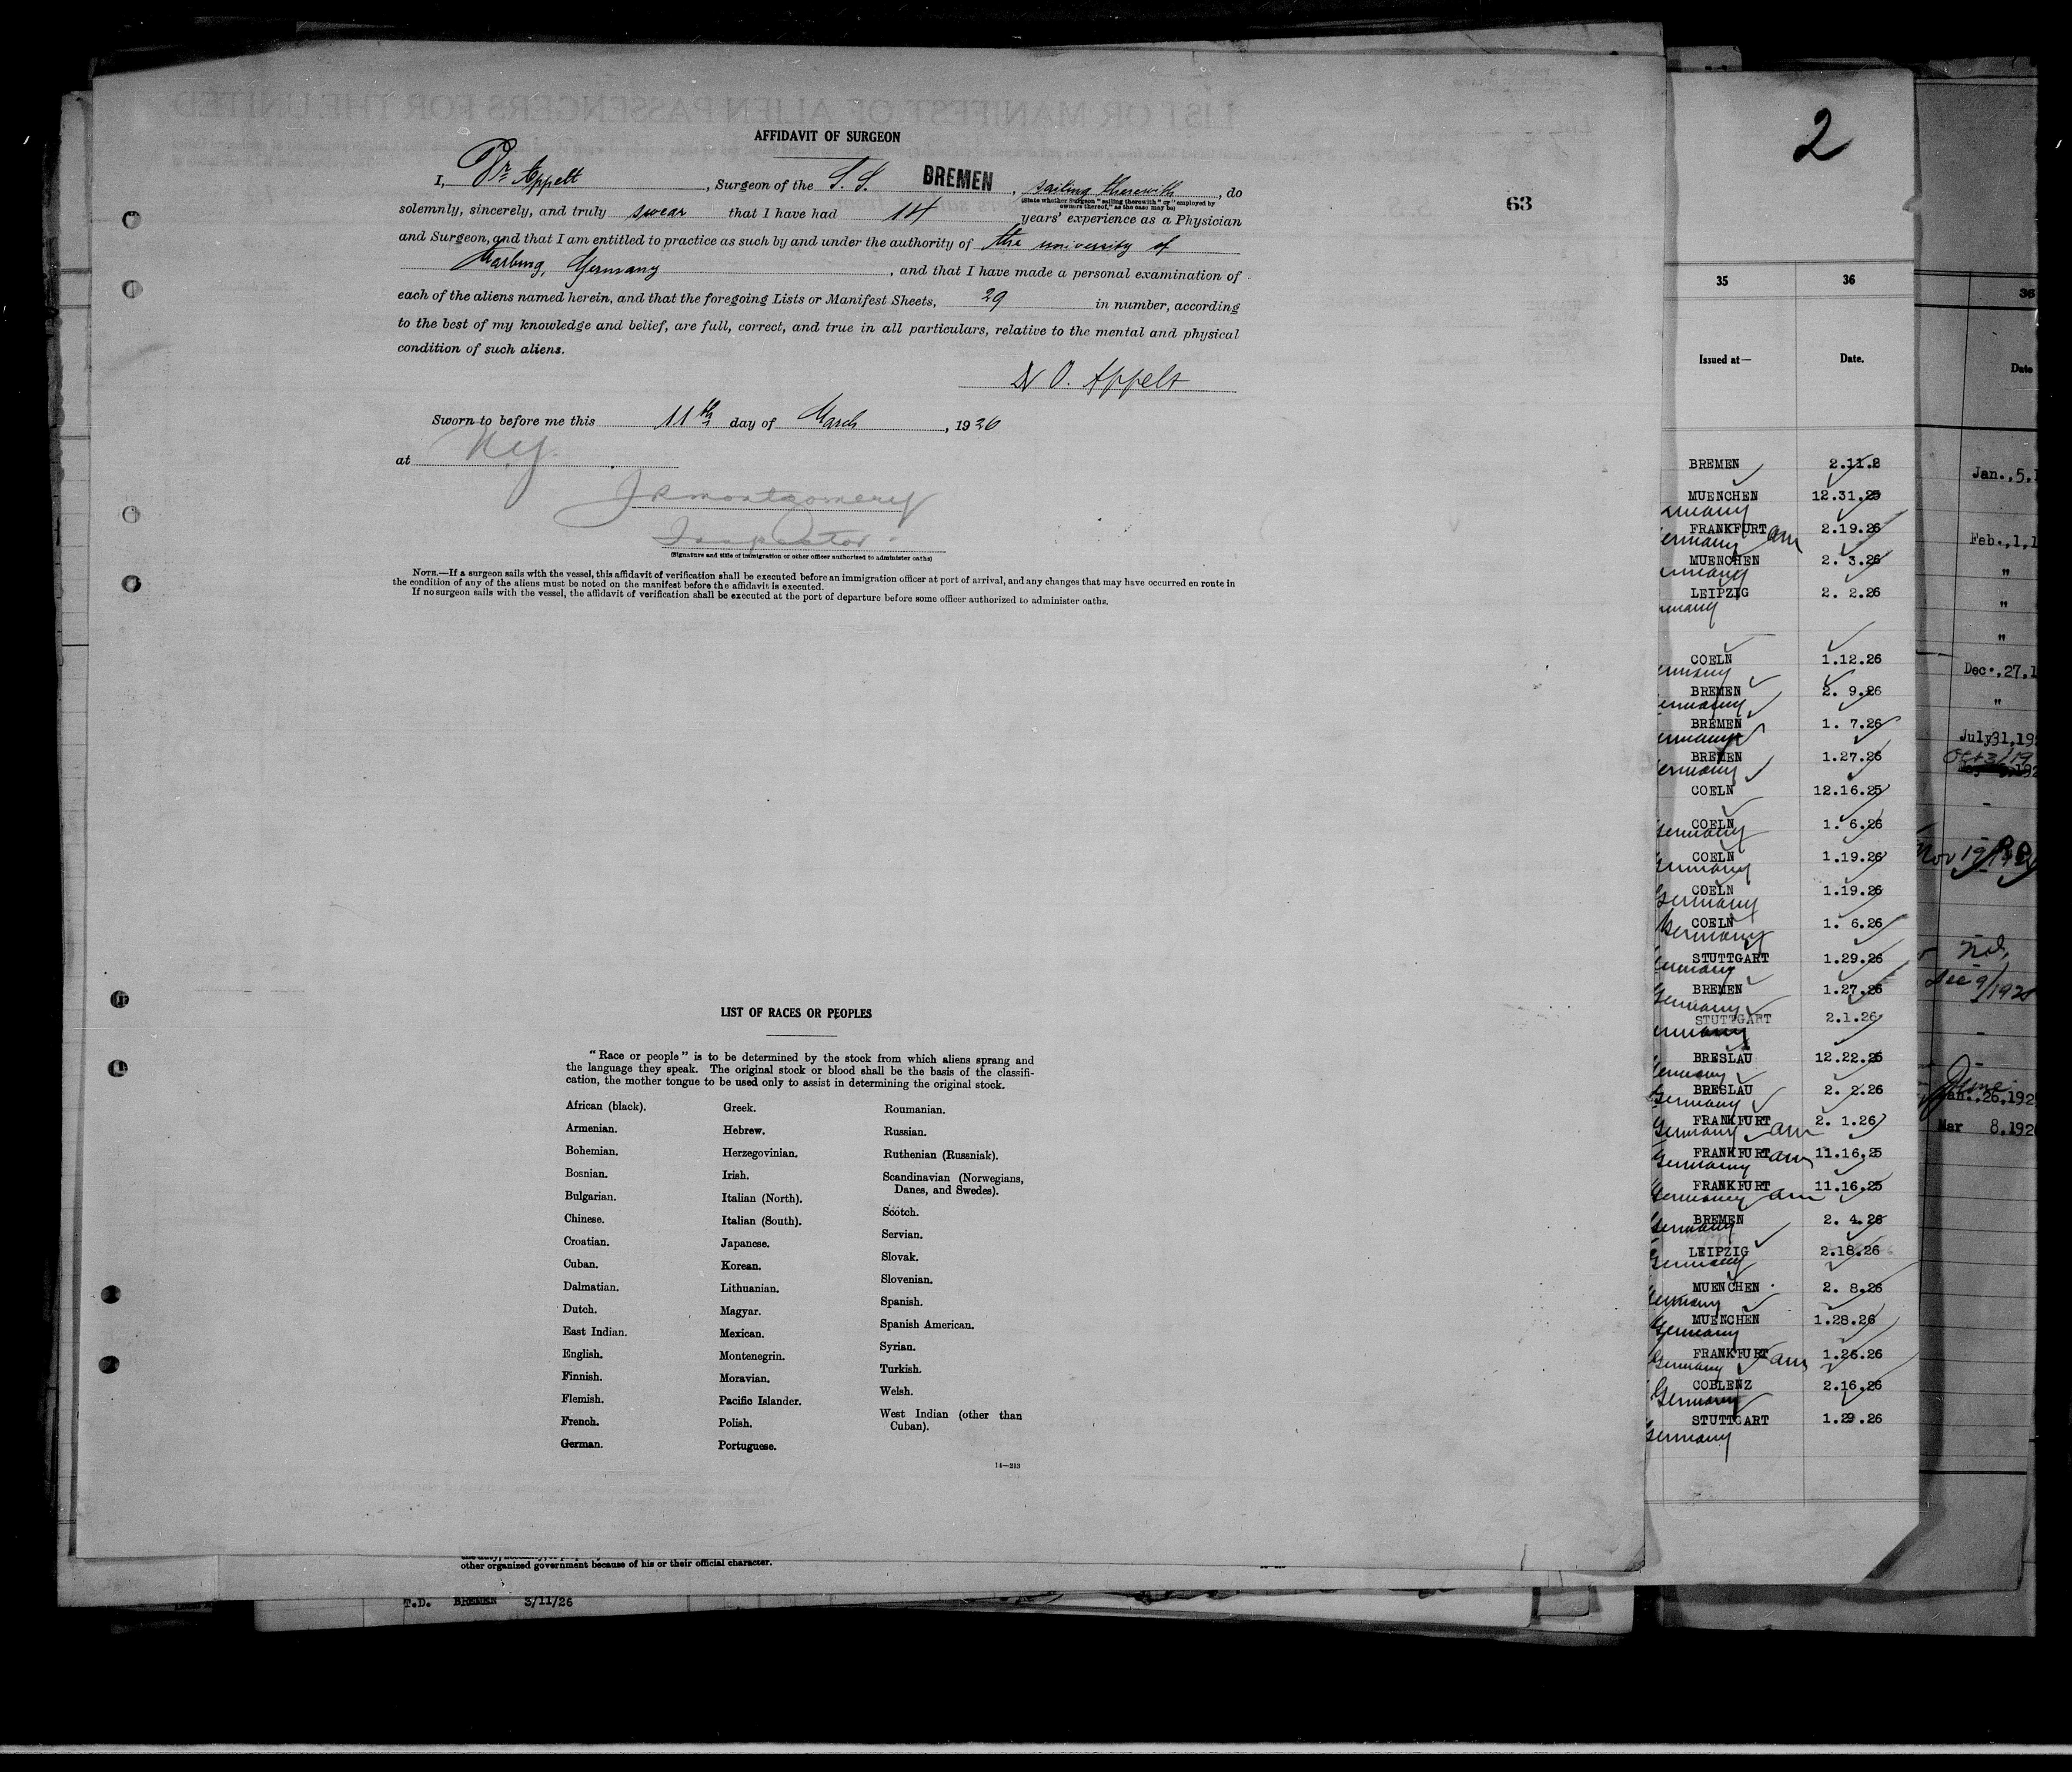 AFFIDAVIT OF SURGEON
I, Dr Appelt, Surgeon of the S. S. BREMEN, sailing therewith, do
(State whether Surgeon "sailing therewith" or "employed by
owners thereof," as the case may be)
solemnly, sincerely, and truly swear that I have had 14 years' experience as a Physician
and Surgeon, and that I am entitled to practice as such by and under the authority of the university of
Marburg, Germany, and that I have made a personal examination of
each of the aliens named herein, and that the foregoing Lists or Manifest Sheets, 29 in number, according
to the best of my knowledge and belief, are full, correct, and true in all particulars, relative to the mental and physical
condition of such aliens.
O. Appelt
Sworn to before me this 11th day of March, 1926
at N.Y.
J R Montgomery
Inspector
(Signature and title of immigration or other officer authorized to administer oaths)
NOTE.—If a surgeon sails with the vessel, this affidavit of verification shall be executed before an immigration officer at port of arrival, and any changes that may have occurred en route in
the condition of any of the aliens must be noted on the manifest before the affidavit is executed.
If no surgeon sails with the vessel, the affidavit of verification shall be executed at the port of departure before some officer authorized to administer oaths.
63
LIST OF RACES OR PEOPLES
"Race or people" is to be determined by the stock from which aliens sprang and
the language they speak. The original stock or blood shall be the basis of the classifi-
cation, the mother tongue to be used only to assist in determining the original stock.
African (black).
Armenian.
Bohemian.
Bosnian.
Bulgarian.
Chinese.
Croatian.
Cuban.
Dalmatian.
Dutch.
East Indian.
English.
Finnish.
Flemish.
French.
German.
Greek.
Hebrew.
Herzegovinian.
Irish.
Italian (North).
Italian (South).
Japanese.
Korean.
Lithuanian.
Magyar.
Mexican.
Montenegrin.
Moravian.
Pacific Islander.
Polish.
Portuguese.
Roumanian.
Russian.
Ruthenian (Russniak).
Scandinavian (Norwegians,
Danes, and Swedes).
Scotch.
Servian.
Slovak.
Slovenian.
Spanish.
Spanish American.
Syrian.
Turkish.
Welsh.
West Indian (other than
Cuban).
14—213
other organized government because of his or their official character.
T.D. BREMEN 3/11/26
2
35 36
Issued at— Date.
BREMEN 2.11.2
MUENCHEN 12.31.25
FRANKFURT am 2.19.26
MUENCHEN 2. 3.26
LEIPZIG 2. 2.26
COELN 1.12.26
BREMEN 2. 9.26
BREMEN 1. 7.26
BREMEN 1.27.26
COELN 12.16.25
COELN 1. 6.26
Germany
COELN 1.19.26
COELN 1.19.26
Germany
COELN 1. 6.26
Germany
STUTTGART 1.29.26
Germany
BREMEN 1.27.26
Germany
STUTTGART 2.1.26
BRESLAU 12.22.25
Germany
BRESLAU 2. 2.26
Germany
FRANKFURT am 2. 1.26
Germany
FRANKFURT am 11.16.25
Germany
FRANKFURT am 11.16.25
Germany
BREMEN 2. 4.26
Germany
LEIPZIG 2.18.26
Germany
MUENCHEN 2. 8.26
Germany
MUENCHEN 1.28.26
Germany
FRANKFURT am 1.26.26
Germany
COBLENZ 2.16.26
Germany
STUTTGART 1.29.26
Germany
36
Date
Jan.,5,1
Feb.,1,1
"
"
"
Dec.,27,1
"
July31,19
Nov 19
Dec 9/192
June
26,192
Mar 8,192